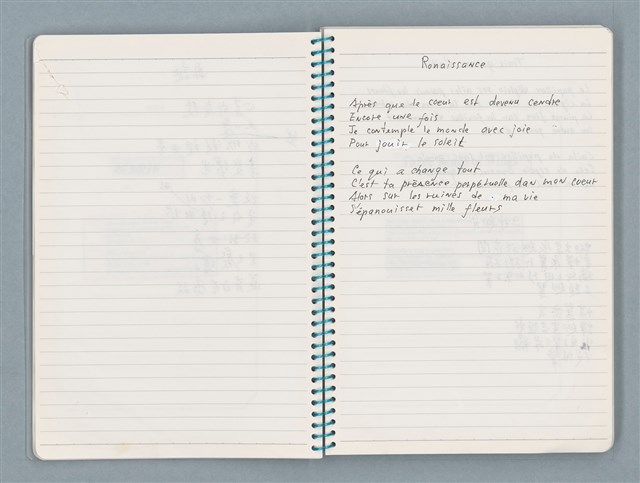 Renaissance
Après que le coeur est devenu cendre
Encore une fois
Je contemple le monde avec joie
Pour jouir le soleil
Ce qui a change tout
C'est ta présence perpétuelle dan mon coeur
Alors sur les ruines de ma vie
S'épanouissat mille fleurs